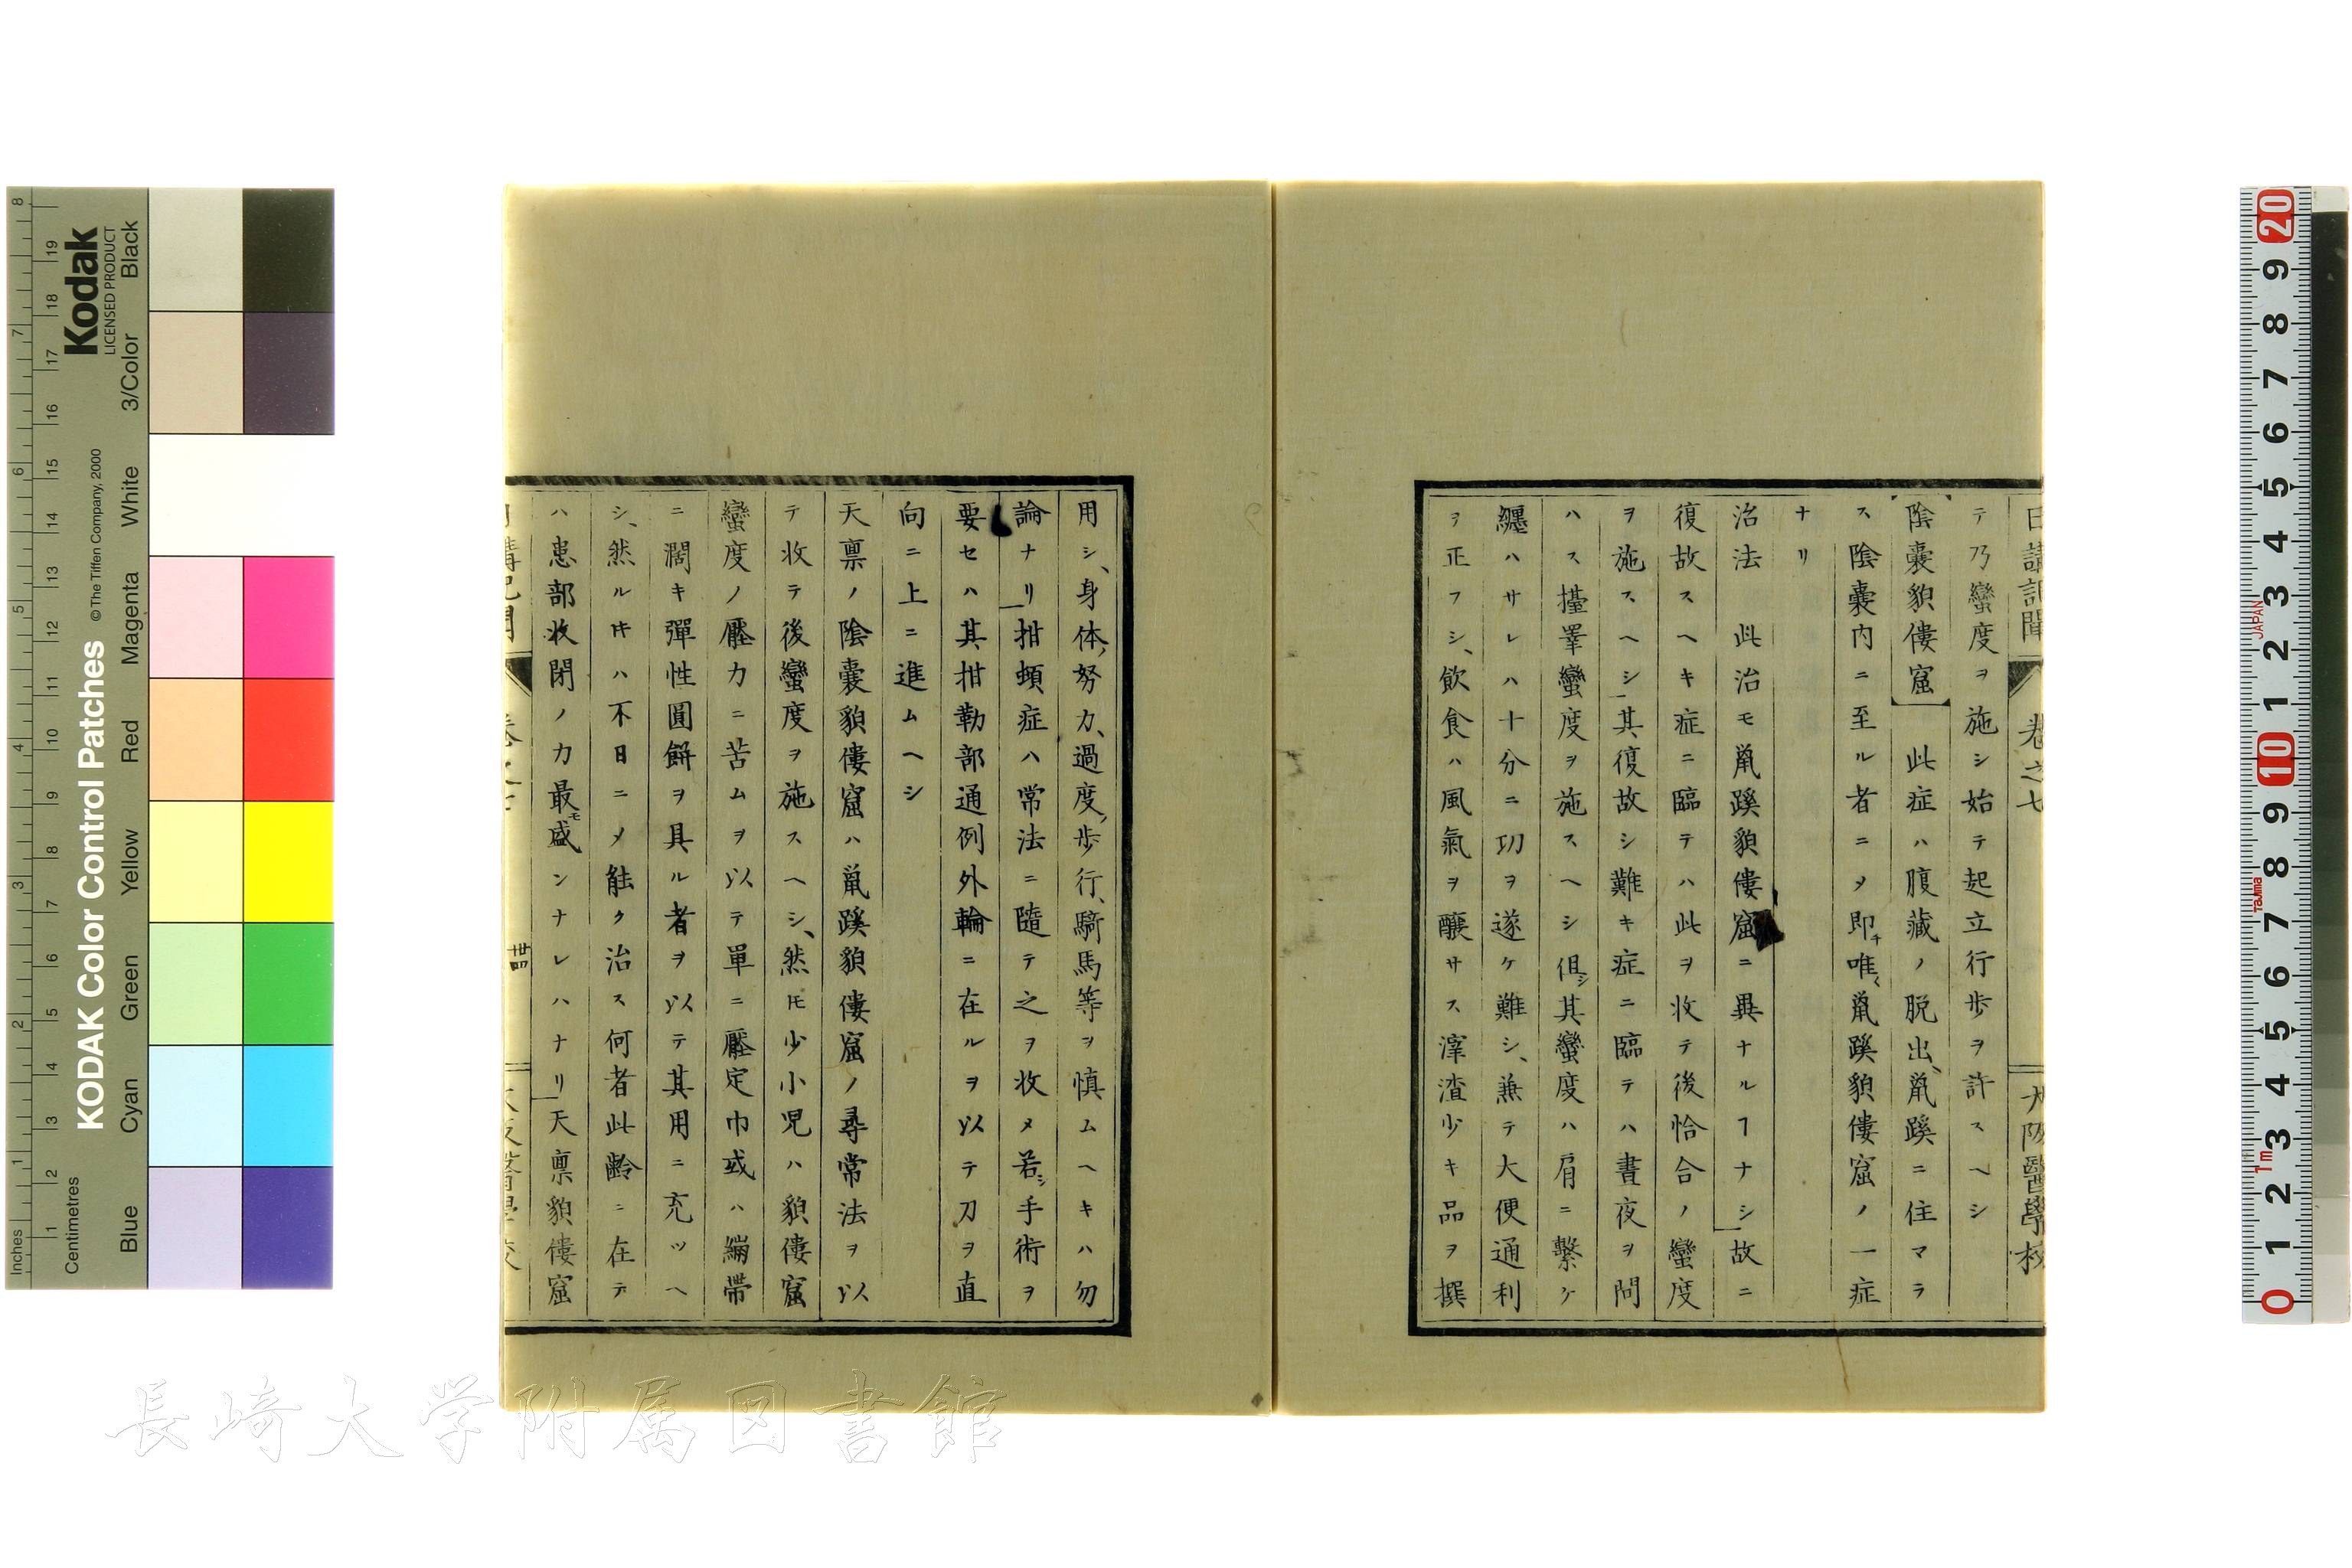 日講記聞 卷之七 大阪醫學校
テ乃蠻度ヲ施シ始テ起立行歩ヲ許スヘシ
陰嚢貌僂窟 此症ハ腹藏ノ脱出、鼠蹊ニ住マラ
ス陰嚢内ニ至ル者ニメ即チ唯〻鼠蹊貌僂窟ノ一症
ナリ
治法 此治モ鼠蹊貌僂窟ニ異ナルヿナシ故ニ
復故スヘキ症ニ臨テハ此ヲ收テ後恰合ノ蠻度
ヲ施スヘシ其復故シ難キ症ニ臨テハ晝夜ヲ問
ハス擡睪蠻度ヲ施スヘシ但シ其蠻度ハ肩ニ繋ケ
纒ハサレハ十分ニ功ヲ遂ケ難シ、兼テ大便通利
ヲ正フシ、飲食ハ風氣ヲ釀サス滓渣少キ品ヲ撰
用シ、身体、努力、過度、歩行、騎馬等ヲ慎ムヘキハ勿
論ナリ拑頓症ハ常法ニ隨テ之ヲ收メ若シ手術ヲ
要セハ其拑勒部通例外輪ニ在ルヲ以テ刀ヲ直
向ニ上ニ進ムヘシ
天禀ノ陰嚢貌僂窟ハ鼠蹊貌僂窟ノ尋常法ヲ以
テ收テ後蠻度ヲ施スヘシ、然㪳少小児ハ貌僂窟
蠻度ノ壓力ニ苦ムヲ以テ單ニ壓定巾或ハ繃帶
ニ濶キ彈性圓餅ヲ具ル者ヲ以テ其用ニ充ツヘ
シ、然ル𪜈ハ不日ニメ能ク治ス何者此齡ニ在テ
ハ患部收閉ノ力最モ盛ンナレハナリ天禀貌僂窟
日講記聞 卷之七 卌 大阪醫學校
KODAK Color Control Patches
© The Tiffen Company, 2000
Kodak
LICENSED PRODUCT
Inches
Centimetres
Blue Cyan Green Yellow Red Magenta White 3/Color Black
JAPAN
Tajima
1m
長崎大学附属図書館